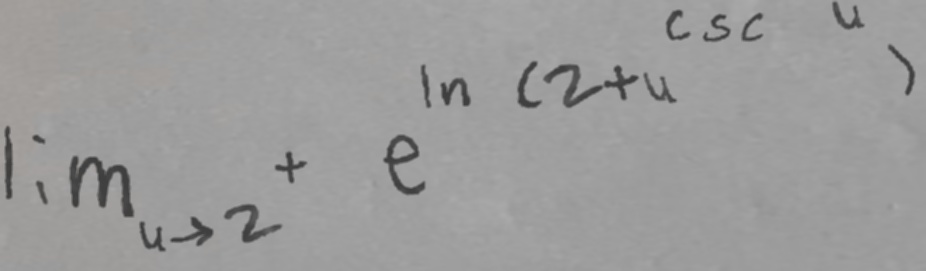 lim_{u→2^+} e^{ln (2+u^{csc u})}